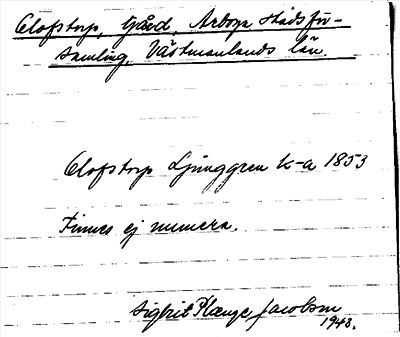 Olofstorp, Gård, Arboga stadsför-
samling, Västmanlands län.
Olofstorp Ljunggren k-a 1853
Finnes ej numera.
Sigbrit Plænge Jacobson
1943.